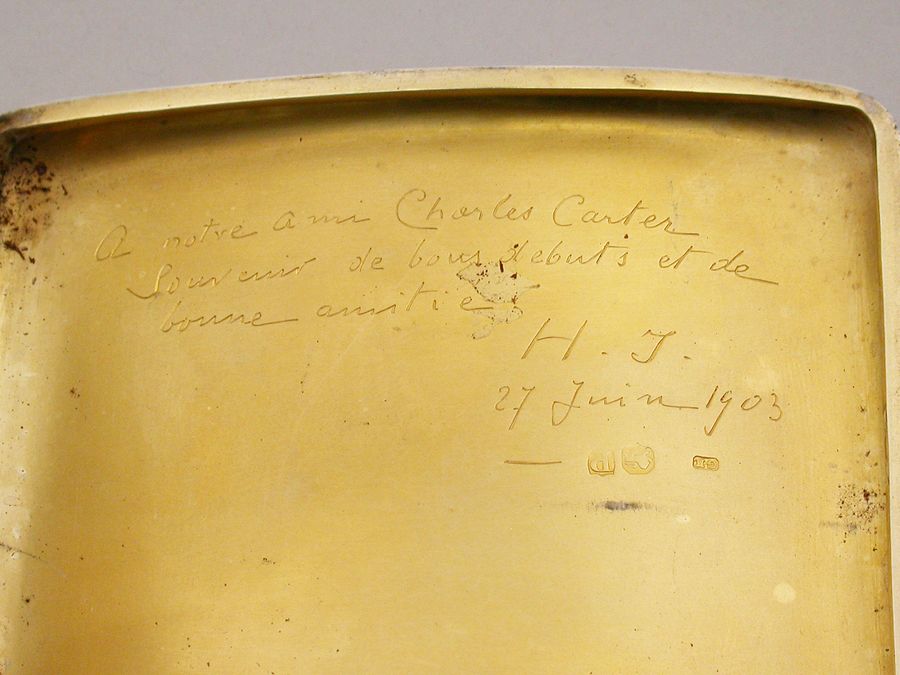 A notre ami Charles Carter
Souvenir de bons debuts et de
bonne amitie
H. J.
27 Juin 1903